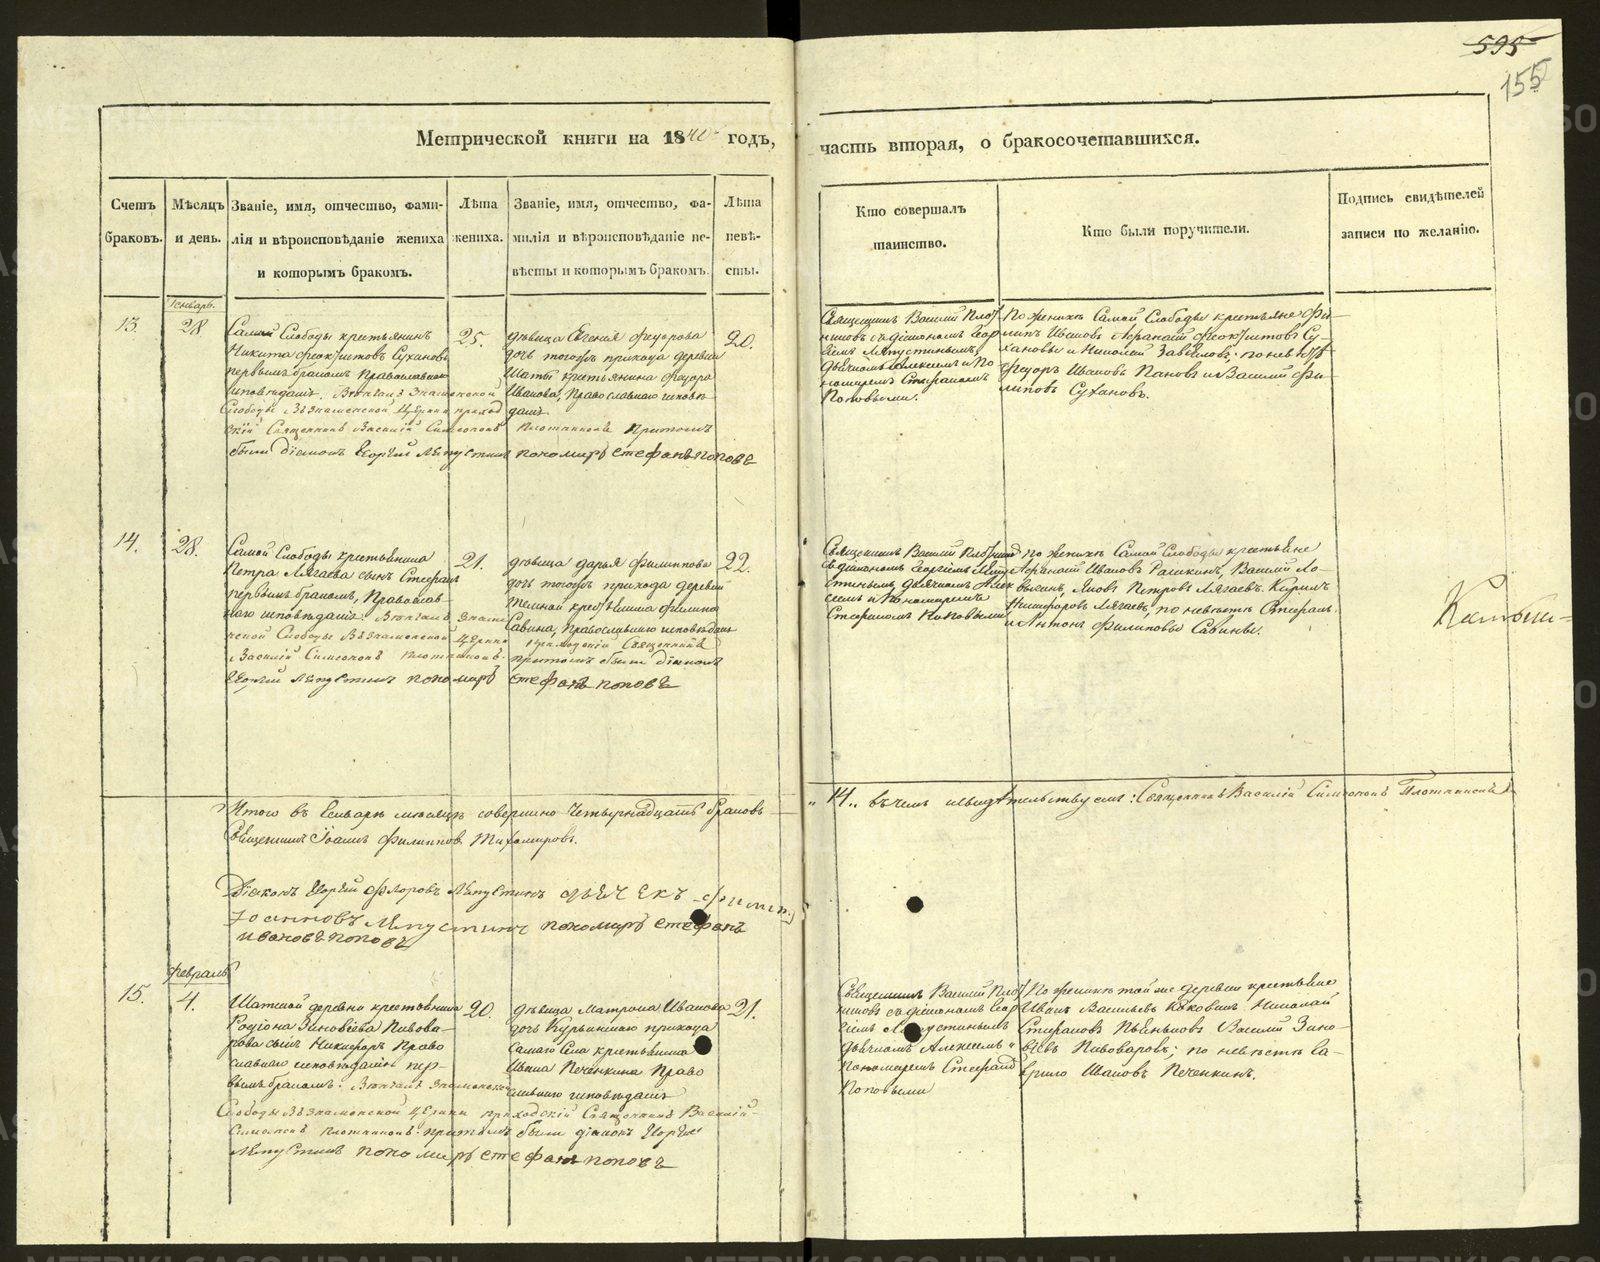 595
155
Метрической книги на 1840 годъ,
часть вторая, о бракосочетавшихся.
Счетъ браковъ.
Мѣсяцъ и день.
Званіе, имя, отчество, фами-
лія и вѣроисповѣданіе жениха
и которымъ бракомъ.
Лѣта
жениха.
Званіе, имя, отчество, фа-
милія и вѣроисповѣданіе не-
вѣсты и которымъ бракомъ.
Лѣта
невѣ-
сты.
Кто совершалъ
таинство.
Кто были поручители.
Подпись свидѣтелей
записи по желанію.
Генварь.
13.
28
Самой Слободы крестьянинъ
Никита Феоктистовъ Сухановъ
первымъ бракомъ Православнаго
исповѣданія. Венчалъ Знаменской
Слободы Въ Знаменской Церкви приход
скій Священникъ Василій Симеоновъ Плотниковъ Притомъ
были діаконъ Георгій Ляпустинъ пономарь стефанъ поповъ
25.
дѣвица Евгенія Федорова
дочь тогожъ прихода деревни
Шаты крестьянина Федора
Иванова, Православнаго исповѣ
данія
20.
Священникъ Василий Плот
никовъ съ діакономъ Геор
гіемъ Ляпустинымъ,
дьячкомъ Алексеемъ и По
номаремъ Стефаномъ
Поповыми.
По женихе Самой Слободы крестьяне Фи-
липъ Ивановъ Афанасий Феоктистовъ Су-
хановы и Николай Завьяловъ; по невѣстѣ
Федоръ Ивановъ Пановъ и Василий Фи-
липовъ Сухановъ.
14.
28.
Самой Слободы крестьянина
Петра Лягаева сынъ Стефанъ
первымъ бракомъ, Православ-
наго исповѣданія. Венчалъ Знаме
нской Слободы Въ Знаменской Церкви приходскій Священникъ
Василій Симеоновъ Плотниковъ. притомъ были діаконъ
Георгій Ляпустинъ пономарь стефанъ поповъ
21.
дѣвица Дарья Филиппова
дочь тогожъ прихода деревни
Темной крестьянина Филипа
Савина, Православнаго исповѣданія
22.
Священникъ Василий Плотниковъ
съ діакономъ Георгіемъ Ляпу
стинымъ, дьячкомъ Алек
сеемъ и Пономаремъ
Стефаномъ Поповыми
по женихе Самой Слободы крестьяне
Афанасий Ивановъ Рашкинъ, Василий Ло-
Яковъ Петровъ Лягаевъ Кирилъ
Никифоровъ Лягаевъ, по невѣстѣ Стефанъ
и Антонъ Филиповы Савины.
Итого въ Генварѣ месяцѣ совершено Четырнадцать браковъ
„ 14 „ въ чемъ и свидѣтельствуемъ: Священникъ Василій Симеоновъ Плотниковъ
Священникъ Іоаннъ Филипповъ Тихомировъ.
Діаконъ Георгій Флоровъ Ляпустинъ дьячекъ Филипъ
Іоанновъ Ляпустинъ пономарь стефанъ
ивановъ поповъ
февраль
15.
4.
Шатской деревни крестьянина
Родіона Зиновіева Пивова-
рова сынъ Никифоръ Право
славнаго исповѣданія пер-
вымъ бракомъ. Венчалъ Знаменской
Слободы Въ Знаменской Церкви приходскій Священникъ Василій
Симеоновъ Плотниковъ. притомъ были діаконъ Георгій
Ляпустинъ пономарь стефанъ поповъ
20.
дѣвица Матрона Иванова
дочь Курьинскаго прихода
самаго Села крестьянина
Ивана Печенкина Право
славнаго исповѣданія
21.
Священникъ Василий Плот
никовъ съ діакономъ Геор
гіемъ Ляпустинымъ
дьячкомъ Алексеемъ и
пономаремъ Стефаномъ
Поповыми
По женихе той же деревни крестьяне
Иванъ Васильевъ Коковинъ Николай
Стефановъ Пьянковъ Василий Зино-
вьевъ Пивоваровъ; по невѣстѣ Га-
врило Ивановъ Печенкинъ.